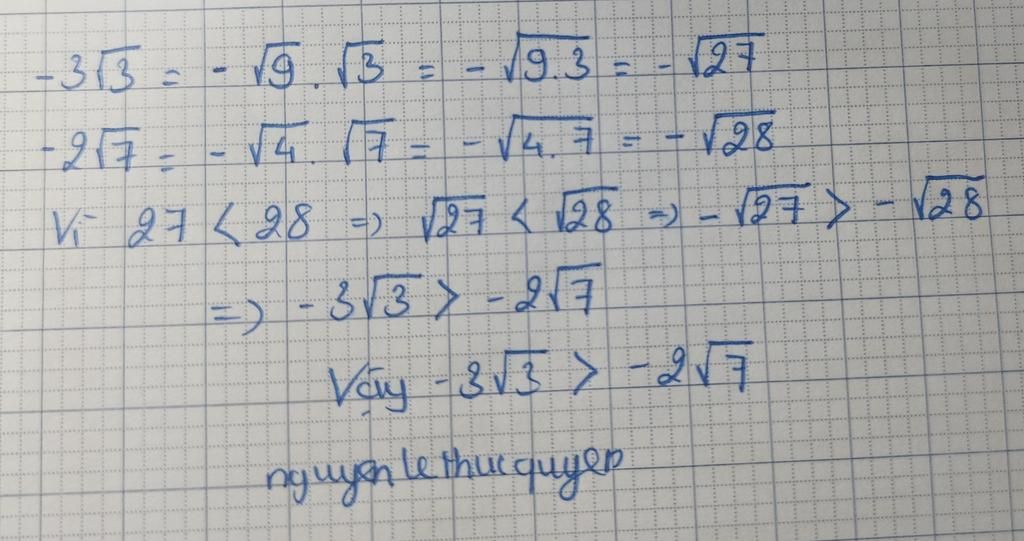 -3√3 = -√9 . √3 = -√9.3 = -√27
-2√7 = -√4 . √7 = -√4.7 = -√28
Vì 27 < 28 => √27 < √28 => -√27 > -√28
=> -3√3 > -2√7
Vậy -3√3 > -2√7
nguyenlethucquyen